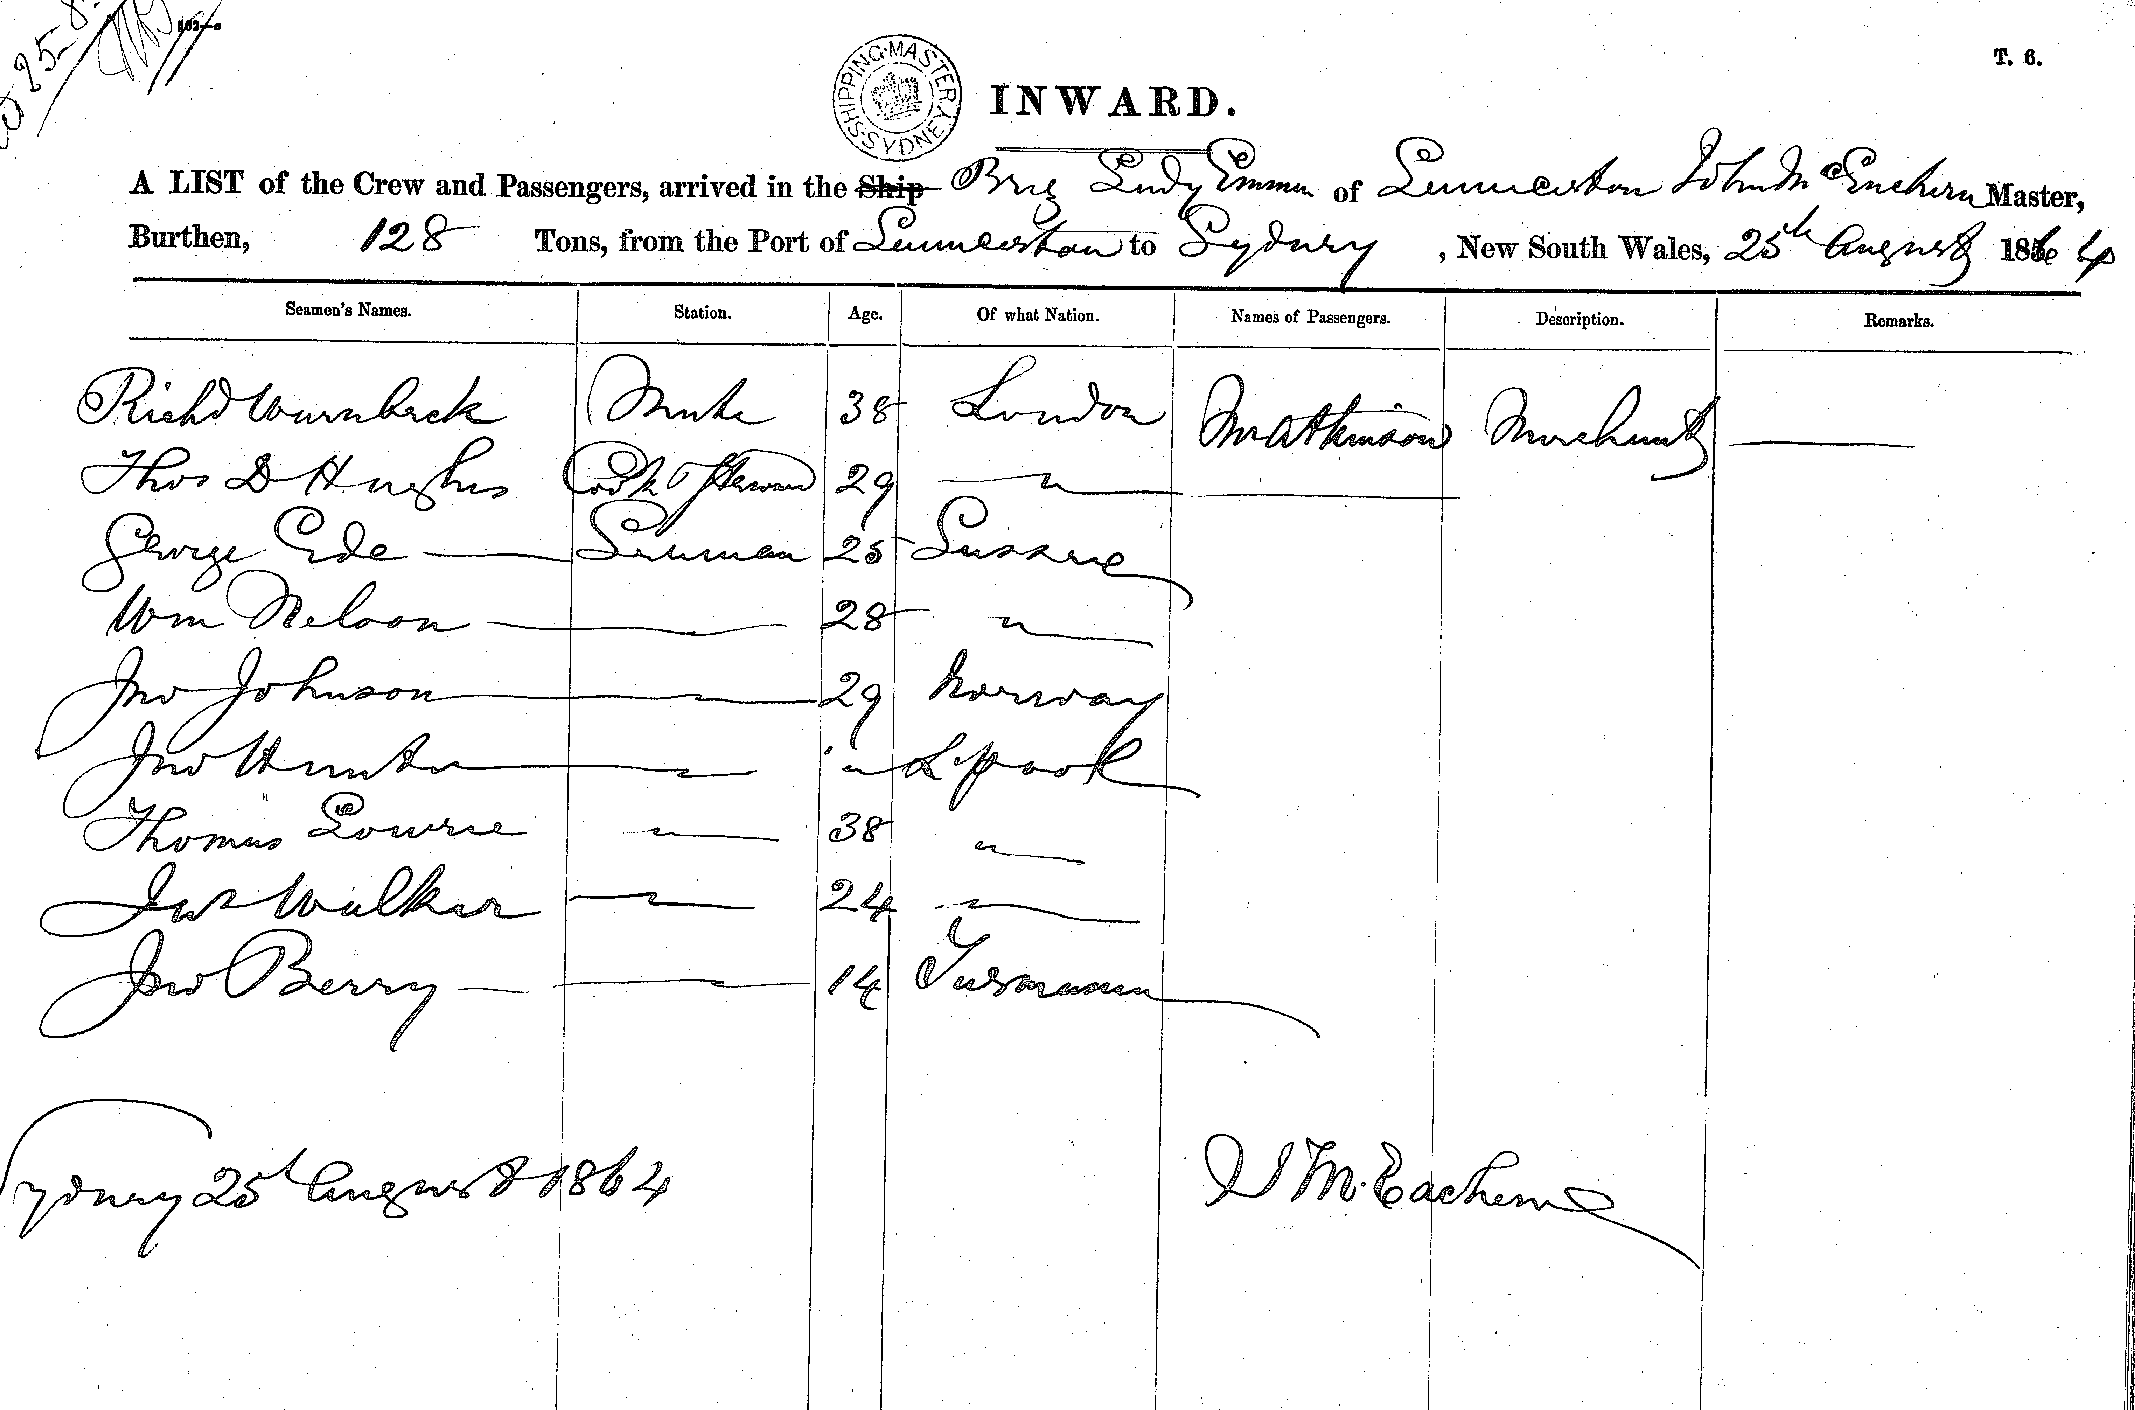 T. 6.
SHIPPING MASTER SYDNEY
INWARD.
A LIST of the Crew and Passengers, arrived in the Ship Brig Lady Emma of Launceston John McEachern Master,
Burthen, 128 Tons, from the Port of Launceston to Sydney, New South Wales, 25th August 1864
Seamen's Names. Station. Age. Of what Nation. Names of Passengers. Description. Remarks.
Richd Warnbeck Mate 38 London Mr Atkinson Merchant —
Thos D Hughes Cook & Steward 29 "
George Ede — Seaman 25 Sussex
Wm Nelson — " 28 "
Jno Johnson — " 29 Norway
Jno Hunter — " " L'pool
Thomas Lowrie " 38 "
Jas Walker " 24 "
Jno Berry — " 14 Tasmania
Sydney 25t August 1864 J McEachern